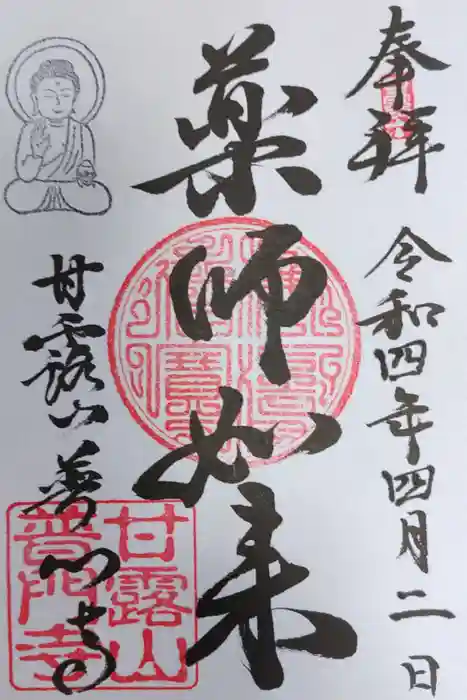 奉拝
令和四年四月二日
薬師如来
甘露山普門寺
甘露山
普門寺